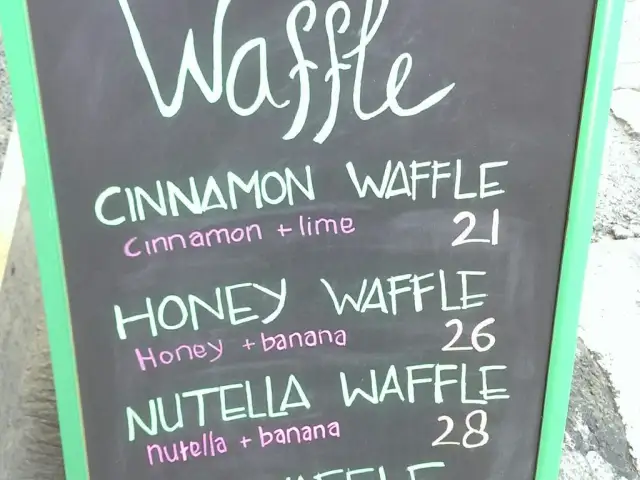 Waffle
CINNAMON WAFFLE
cinnamon + lime 21
HONEY WAFFLE
Honey + banana 26
NUTELLA WAFFLE
nutella + banana 28
WAFFLE